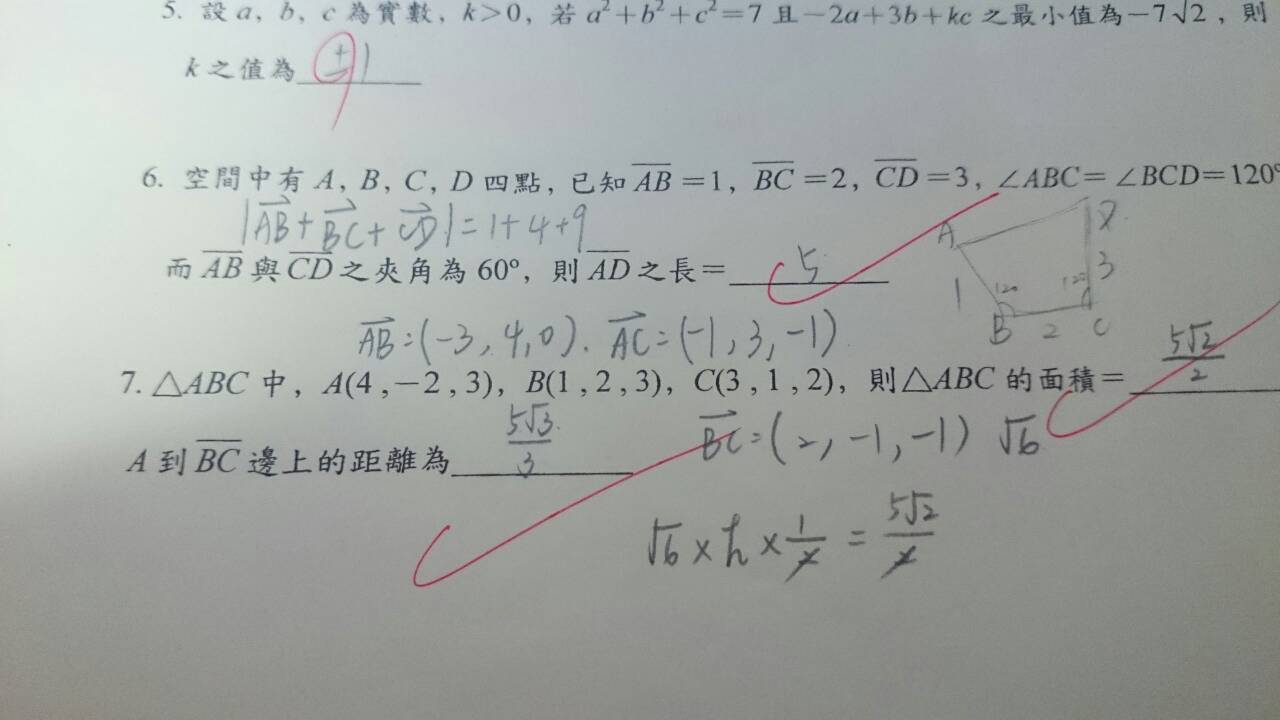 5. 設 a, b, c 為實數, k>0, 若 a²+b²+c²=7 且 −2a+3b+kc 之最小值為 −7√2, 則
k 之值為 ±1
6. 空間中有 A, B, C, D 四點, 已知 AB=1, BC=2, CD=3, ∠ABC=∠BCD=120°
|AB+BC+CD|=1+4+9
而 AB 與 CD 之夾角為 60°, 則 AD 之長= 5
A 1 120 B 2 120 C 3
AB=(-3,4,0). AC=(-1,3,-1)
7. △ABC 中, A(4,−2,3), B(1,2,3), C(3,1,2), 則△ABC 的面積= 5√2/2
BC=(2,-1,-1) √6
A 到 BC 邊上的距離為 5√3/3
√6×h×1/2=5√2/2